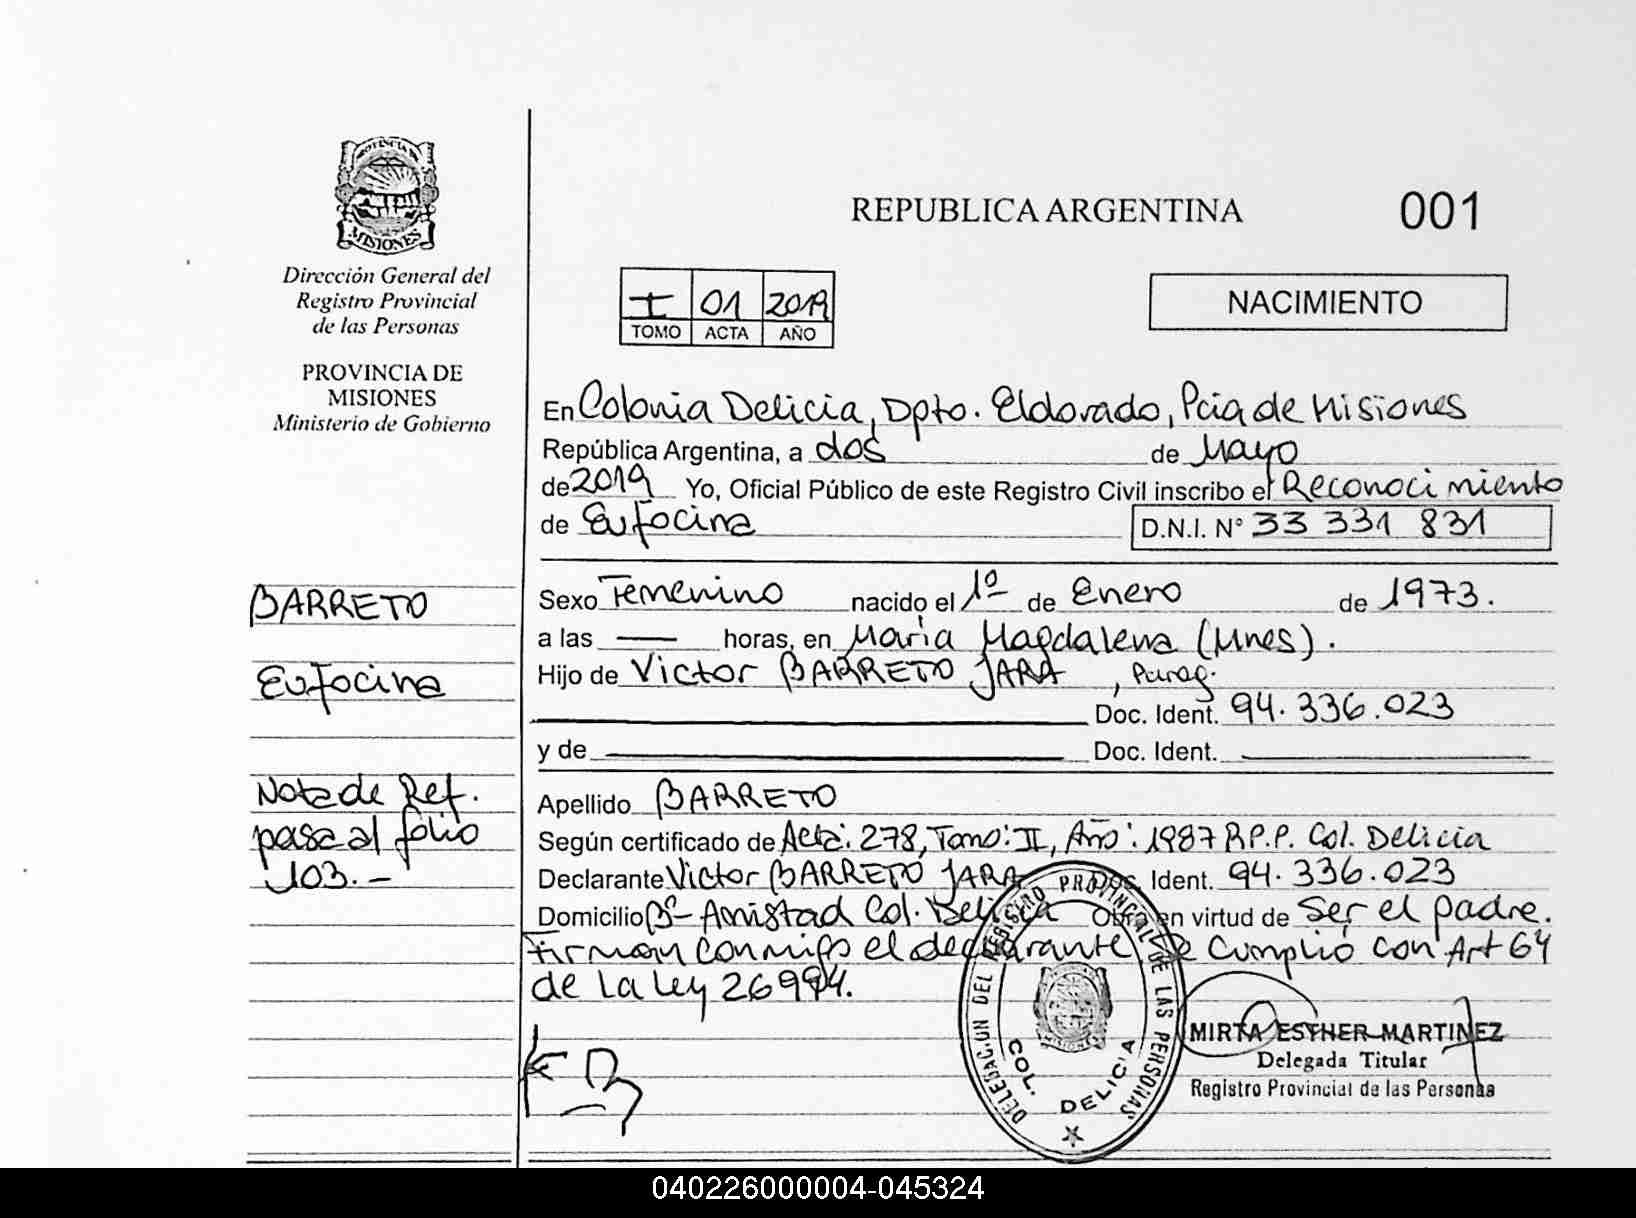 PROVINCIA DE
MISIONES
Dirección General del
Registro Provincial
de las Personas
PROVINCIA DE
MISIONES
Ministerio de Gobierno
REPUBLICA ARGENTINA
001
I 01 2019
TOMO ACTA AÑO
NACIMIENTO
En Colonia Delicia, Dpto. Eldorado, Pcia de Misiones
República Argentina, a dos de Mayo
de 2019 Yo, Oficial Público de este Registro Civil inscribo el Reconocimiento
de Eufocina D.N.I. N° 33 331 831
Sexo Femenino nacido el 1º de Enero de 1973.
a las — horas, en María Magdalena (Mnes).
Hijo de Victor BARRETO JARA, Parag.
Doc. Ident. 94.336.023
y de Doc. Ident.
Apellido BARRETO
Según certificado de Acta: 278, Tomo: II, Año: 1987 R.P.P. Col. Delicia
Declarante Victor BARRETO JARA Doc. Ident. 94.336.023
Domicilio Bº Amistad Col. Delicia Obra en virtud de Ser el padre.
Firman conmigo el declarante Se cumplió con Art 64
de La Ley 26994.
BARRETO
Eufocina
Nota de Ref.
pasa al folio
103.-
DELEGACION DEL REGISTRO PROVINCIAL DE LAS PERSONAS
COL. DELICIA
MIRTA ESTHER MARTINEZ
Delegada Titular
Registro Provincial de las Personas
040226000004-045324